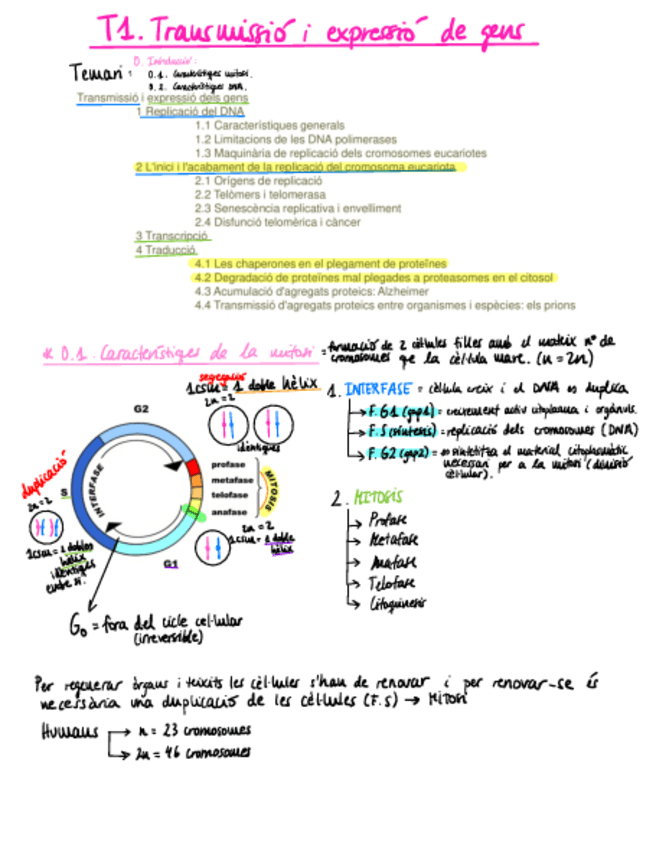 T1. Transmissió i expressió de gens
0. Introducció:
Temari: 0.1. Característiques mitosi.
0.2. Característiques DNA.
Transmissió i expressió dels gens
1 Replicació del DNA
1.1 Característiques generals
1.2 Limitacions de les DNA polimerases
1.3 Maquinària de replicació dels cromosomes eucariotes
2 L'inici i l'acabament de la replicació del cromosoma eucariota
2.1 Orígens de replicació
2.2 Telòmers i telomerasa
2.3 Senescència replicativa i envelliment
2.4 Disfunció telomèrica i càncer
3 Transcripció
4 Traducció
4.1 Les chaperones en el plegament de proteïnes
4.2 Degradació de proteïnes mal plegades a proteasomes en el citosol
4.3 Acumulació d'agregats proteics: Alzheimer
4.4 Transmissió d'agregats proteics entre organismes i espècies: els prions
* 0.1. Característiques de la mitosi = formació de 2 cèl·lules filles amb el mateix nº de
cromosomes que la cèl·lula mare. (n = 2n)
segregació
1csm = 1 doble hèlix
2n = 2
identiques
G2
duplicació
2n = 2
S
INTERFASE
profase
metafase
telofase
anafase
MITOSIS
2n = 2
1csm = 1 doble
hèlix
G1
1csm = 2 dobles
hèlix
idèntiques
entre si.
G0 = fora del cicle cel·lular
(irreversible)
1. INTERFASE = cèl·lula creix i el DNA es duplica
F. G1 (gap1) = creixement activ citoplasma i orgànuls.
F. S (síntesis) = replicació dels cromosomes (DNA)
F. G2 (gap2) = es sintetitza el material citoplasmàtic
necessari per a la mitosi (divisió
cel·lular).
2. MITOSIS
Profase
Metafase
Anafase
Telofase
Citoquinesis
Per regenerar òrgans i teixits les cèl·lules s'han de renovar i per renovar-se és
necessària una duplicació de les cèl·lules (F. S) → Mitosi
Humans → n = 23 cromosomes
→ 2n = 46 cromosomes